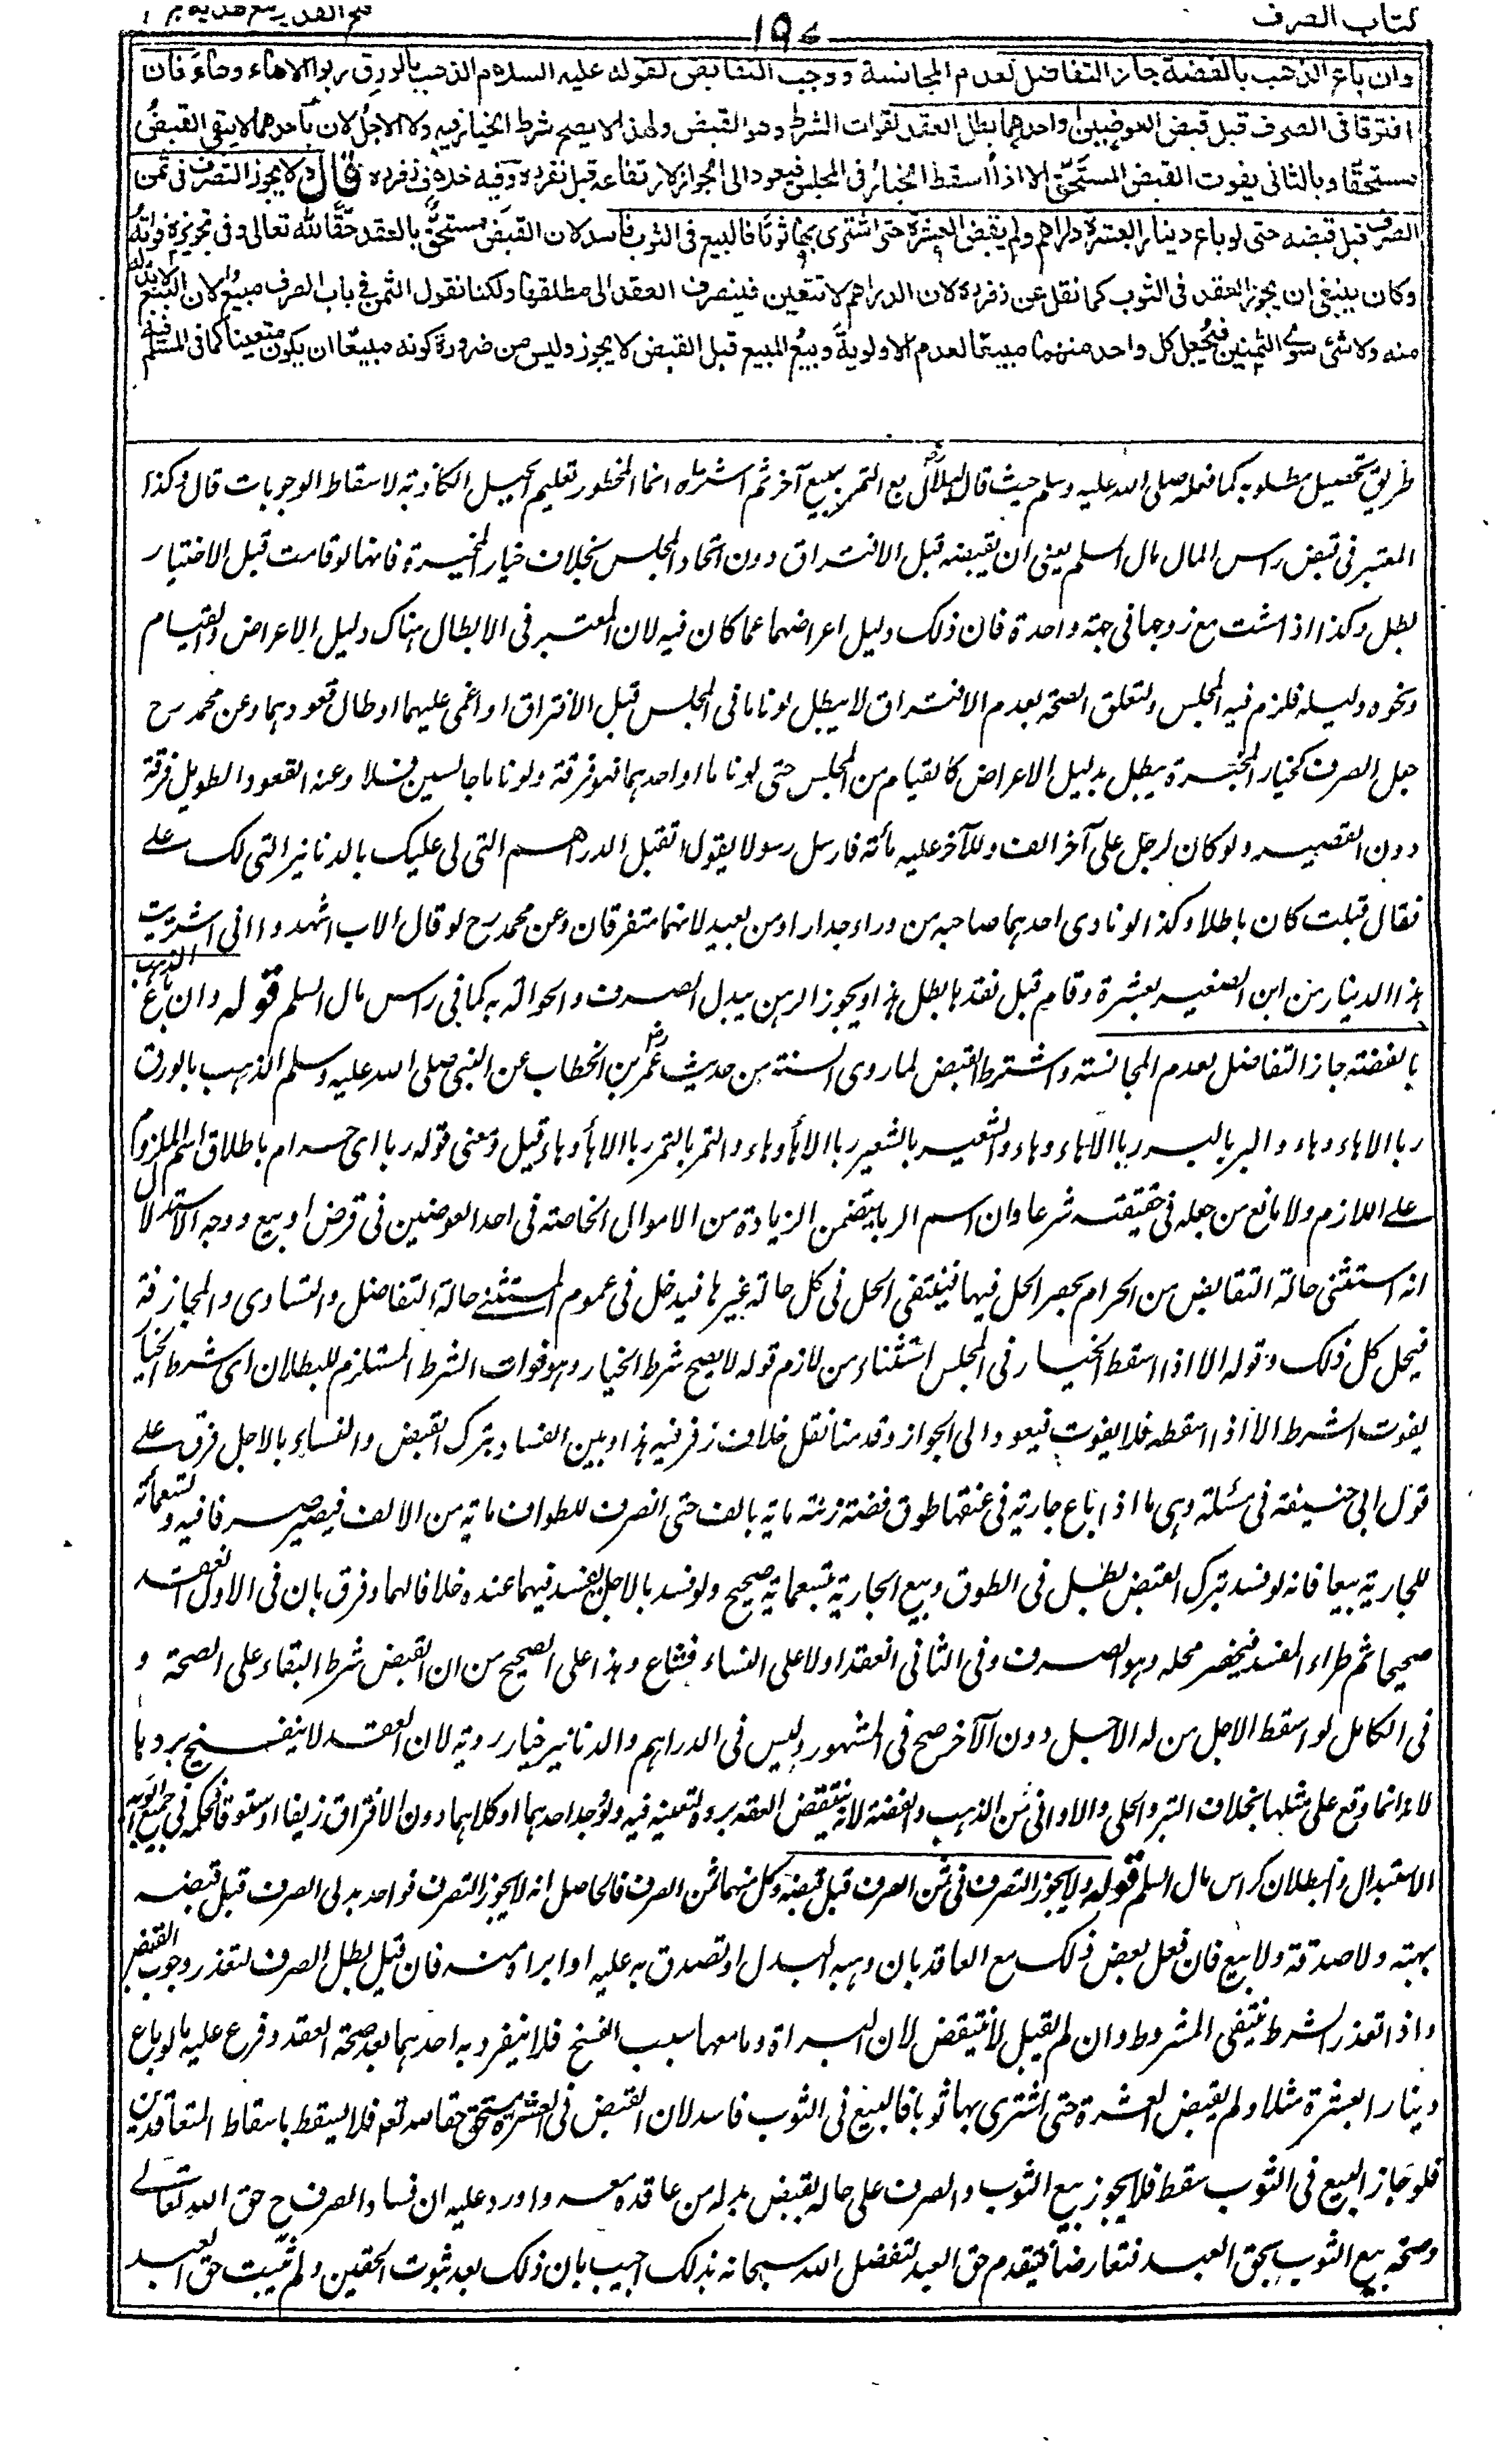 كتاب الصرف
١٩٤
فتح القدير مع هدايه ج ٣
وان باع الذهب بالفضة جاز التفاضل لعدم المجانسة ووجب التقابض لقوله عليه السلام الذهب بالورق ربوا الا هاء وهاء فان
افترقا فى الصرف قبل قبض العوضين او احدهما بطل العقد لفوات الشرط وهو القبض ولهذا لا يصح شرط الخيار فيه ولا الاجل لان باحدهما لا يبقى القبض
مستحقا وبالثانى يفوت القبض المستحق الا اذا اسقط الخيار فى المجلس فيعود الى الجواز لارتفاعه قبل تقرره وفيه خلاف زفره قال ولا يجوز التصرف فى ثمن
الصرف قبل قبضه حتى لو باع دينارا بعشرة دراهم ولم يقبض العشرة حتى اشترى بها ثوبا فالبيع فى الثوب فاسد لان القبض مستحق بالعقد حقا لله تعالى وفى تجويزه فواته
وكان ينبغى ان يجوز العقد فى الثوب كما نقل عن زفره لان الدراهم لا تتعين فينصرف العقد الى مطلقها ولكنا نقول الثمن فى باب الصرف مبيع لان البيع لا بد له
منه ولا شئ سوى الثمنين فيجعل كل واحد منهما مبيعا لعدم الاولوية وبيع المبيع قبل القبض لا يجوز وليس من ضرورة كونه مبيعا ان يكون متعينا كما فى المسلم فيه
طريق تحصيل مطلوبه كما فعله صلى الله عليه وسلم حيث قال لبلال رض بع التمر ببيع آخر ثم اشتره انما المحظور تعليم الحيل الكاذبة لاسقاط الوجوبات قال وكذا
المعتبر فى قبض راس المال مال السلم يعنى ان يقبضه قبل الافتراق دون اتحاد المجلس بخلاف خيار المخيرة فانها لو قامت قبل الاختيار
بطل وكذا اذا مشت مع زوجها فى جهة واحدة فان ذلك دليل اعراضهما عما كان فيه لان المعتبر فى الابطال هناك دليل الاعراض والقيام
ونحوه دليله فلزم فيه المجلس ولتعلق الصحة بعدم الافتراق لا يبطل لو ناما فى المجلس قبل الافتراق او اغمى عليهما او طال قعودهما وعن محمد رح
جعل الصرف كخيار المخيرة يبطل بدليل الاعراض كالقيام من المجلس حتى لو ناما او احدهما فهو فرقة ولو ناما جالسين فلا وعنه القعود الطويل فرقة
دون القصير ولو كان لرجل على آخر الف وللآخر عليه مائة فارسل رسولا يقول اتقبل الدراهم التى لى عليك بالدنانير التى لك على
فقال قبلت كان باطلا وكذا لو نادى احدهما صاحبه من وراء جدار او من بعيد لانهما متفرقان وعن محمد رح لو قال الاب اشهدوا انى اشتريت
هذا الدينار من ابن الصغير بعشرة وقام قبل نقدها بطل هذا ويجوز الرهن ببدل الصرف والحوالة به كما فى راس مال السلم قوله وان باع الذهب
بالفضة جاز التفاضل لعدم المجانسة واشترط القبض لما روى الستة من حديث عمر رض بن الخطاب عن النبى صلى الله عليه وسلم الذهب بالورق
ربا الا هاء وهاء والبر بالبر ربا الا هاء وهاء والشعير بالشعير ربا الا هاء وهاء والتمر بالتمر ربا الا هاء وهاء قيل ومعنى قوله ربا اى حرام باطلاق اسم الملزوم
على اللازم ولا مانع من جعله فى حقيقته شرعا وان اسم الربا يتضمن الزيادة من الاموال الخاصة فى احد العوضين فى قرض او بيع ووجه الاستدلال
انه استثنى حالة التقابض من الحرام بحصر الحل فيها فينتفى الحل فى كل حالة غيرها فيدخل فى عموم المستثنى حالة التفاضل والتساوى والمجازفة
فيحل كل ذلك وقوله الا اذا اسقط الخيار فى المجلس استثناء من لازم قوله لا يصح شرط الخيار وهو فوات الشرط المستلزم للبطلان اى شرط الخيار
يفوت الشرط الا اذا اسقطه فلا يفوت فيعود الى الجواز وقدمنا نقل خلاف زفر فيه هذا وبين الفساد بترك القبض والفساد بالاجل فرق على
قول ابى حنيفة فى مسئلة وهى ما اذا باع جارية فى عنقها طوق فضة زنته ماية بالف حتى انصرف للطوق ماية من الالف فيصير صرفا فيه وتسعمائة
للجارية بيعا فانه لو فسد بترك القبض بطل فى الطوق وبيع الجارية بتسعماية صحيح ولو فسد بالاجل فسد فيهما عنده خلافا لهما وفرق بان فى الاول انعقد
صحيحا ثم طراء المفسد فيخص محله وهو الصرف وفى الثانى انعقد اولا على الفساد فشاع وهذا على الصحيح من ان القبض شرط البقاء على الصحة و
فى الكامل لو اسقط الاجل من له الاجل دون الآخر صح فى المشهور وليس فى الدراهم والدنانير خيار رؤية لان العقد لا ينفسخ بردها
لانه انما وقع على مثلها بخلاف التبر والحلى والاوانى من الذهب والفضة لانه ينتقض العقد برده لتعينه فيه ولو وجد احدهما او كلاهما دون الافتراق زيفا او ستوقا فحكمه فى جميع
الاستبدال والبطلان كراس مال السلم قوله ولا يجوز التصرف فى ثمن الصرف قبل قبضه وكل منهما ثمن الصرف فالحاصل انه لا يجوز التصرف فى احد بدلى الصرف قبل قبضه
بهبة ولا صدقة ولا بيع فان فعل بعض ذلك مع العاقد بان وهبه البدل او تصدق به عليه او ابراه منه فان قبل بطل الصرف لتعذر وجوب القبض
واذا تعذر الشرط ينتفى المشروط وان لم يقبل لا ينتقض لان البراة وما معها سبب الفسخ فلا ينفرد به احدهما بعد صحة العقد وفرع عليه ما لو باع
دينارا بعشرة مثلا ولم يقبض العشرة حتى اشترى بها ثوبا فالبيع فى الثوب فاسد لان القبض فى العشرة مستحق حقا لله تعه فلا يسقط باسقاط المتعاقدين
فلو جاز البيع فى الثوب سقط فلا يجوز بيع الثوب والصرف على حاله يقبض بدله من عاقده معه واورد عليه ان فساد الصرف ح حق الله تعالى
وصحة بيع الثوب بحق العبد فتعارضا فيقدم حق العبد لتفضل الله سبحانه بذلك اجيب بان ذلك بعد ثبوت الحقين ولم يثبت حق العبد